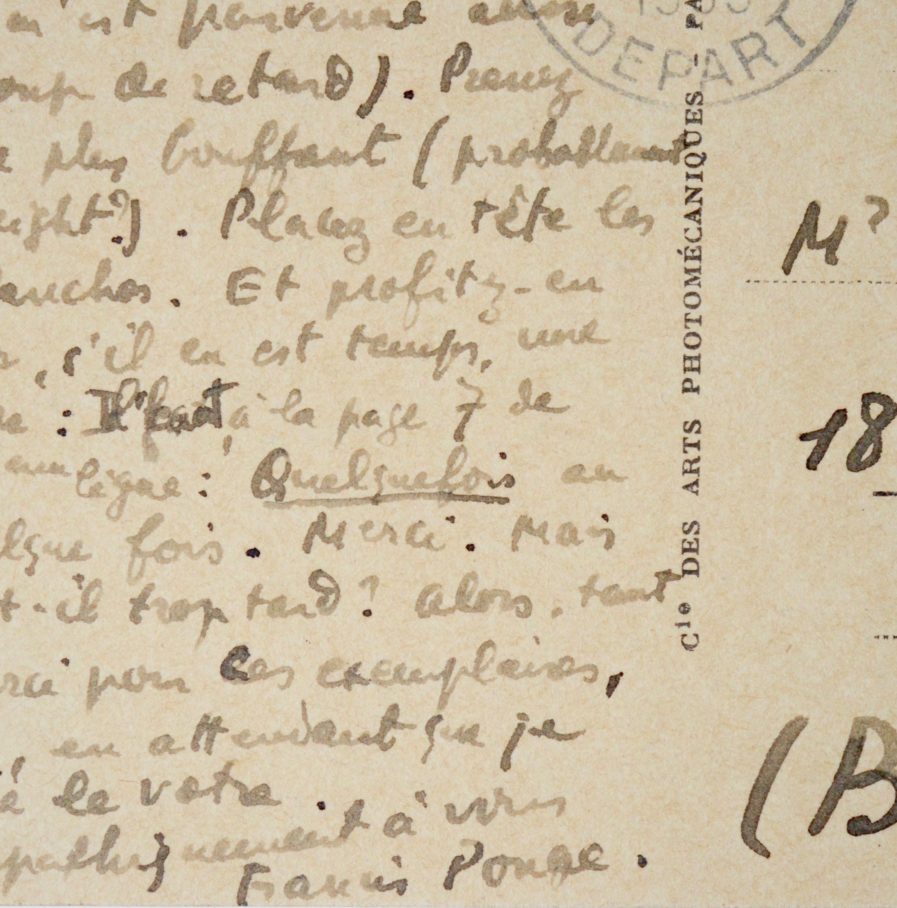 m'est parvenue avec
coup de retard). Prenez
plus bouffant (probablement
eight?). Placez en tête les
anches. Et profitez-en
s'il en est temps, une
: Il faut, à la page 7 de
ligne : Quelquefois en
elque fois. Merci. Mais
t-il trop tard? Alors, tant
rci pour ces exemplaires,
, en attendant que je
à le votre.
pathiquement à vous
Francis Ponge.
DEPART
Cie DES ARTS PHOTOMÉCANIQUES - PA
M
18
(B